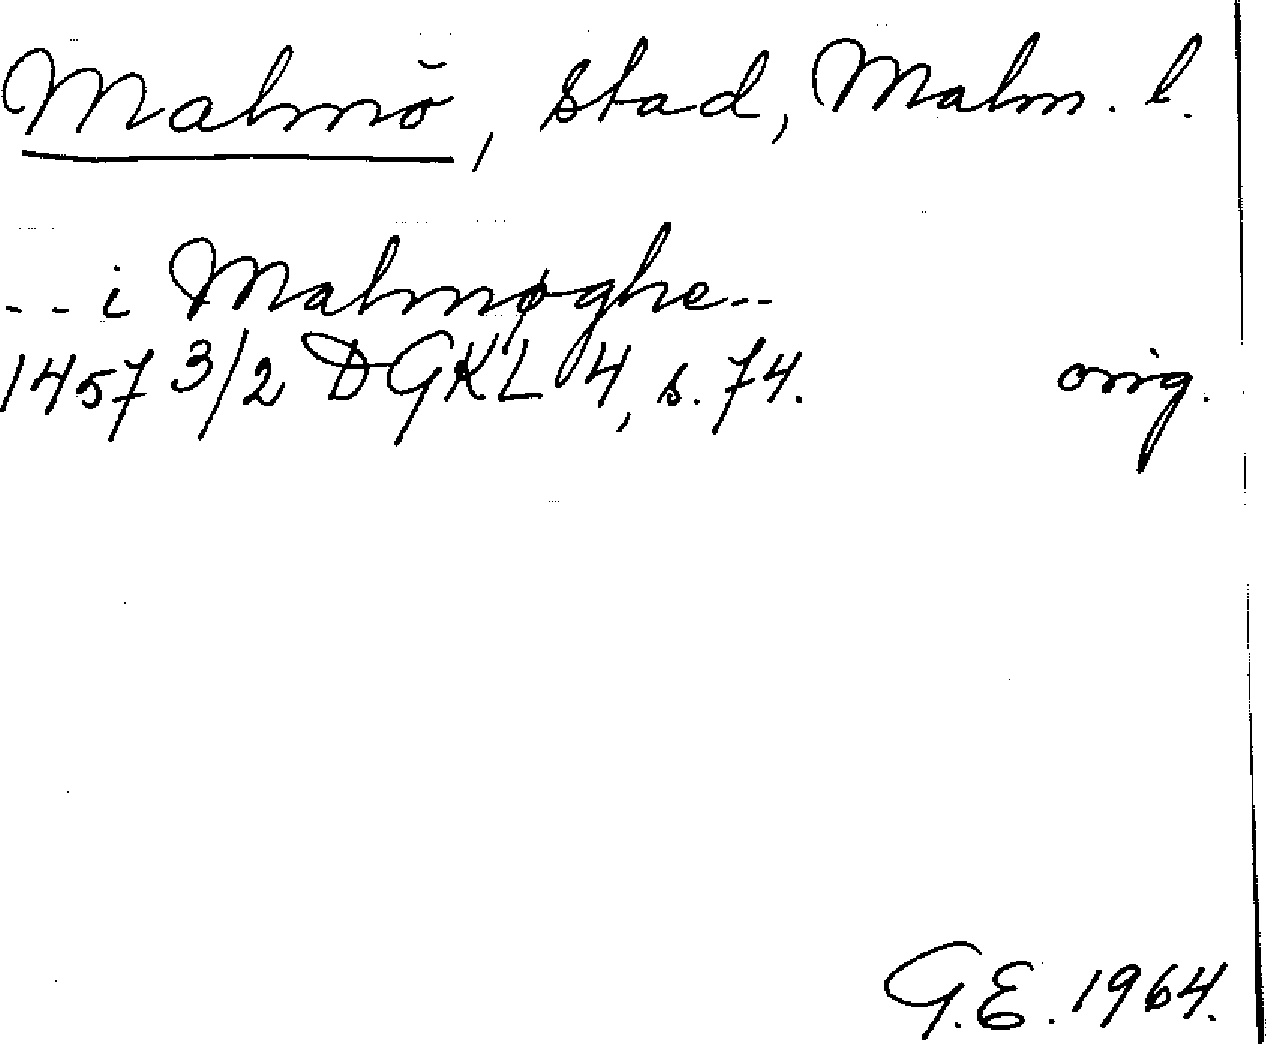 Malmö, stad, Malm. l.
-- i Malmøghe--
1457 3/2 DGKL 4, s. 74. orig.
G.E. 1964.